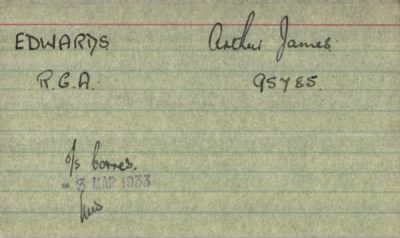 EDWARDS Arthur James.
R.G.A. 95785.
o/s corres.
- 3 MAR 1933